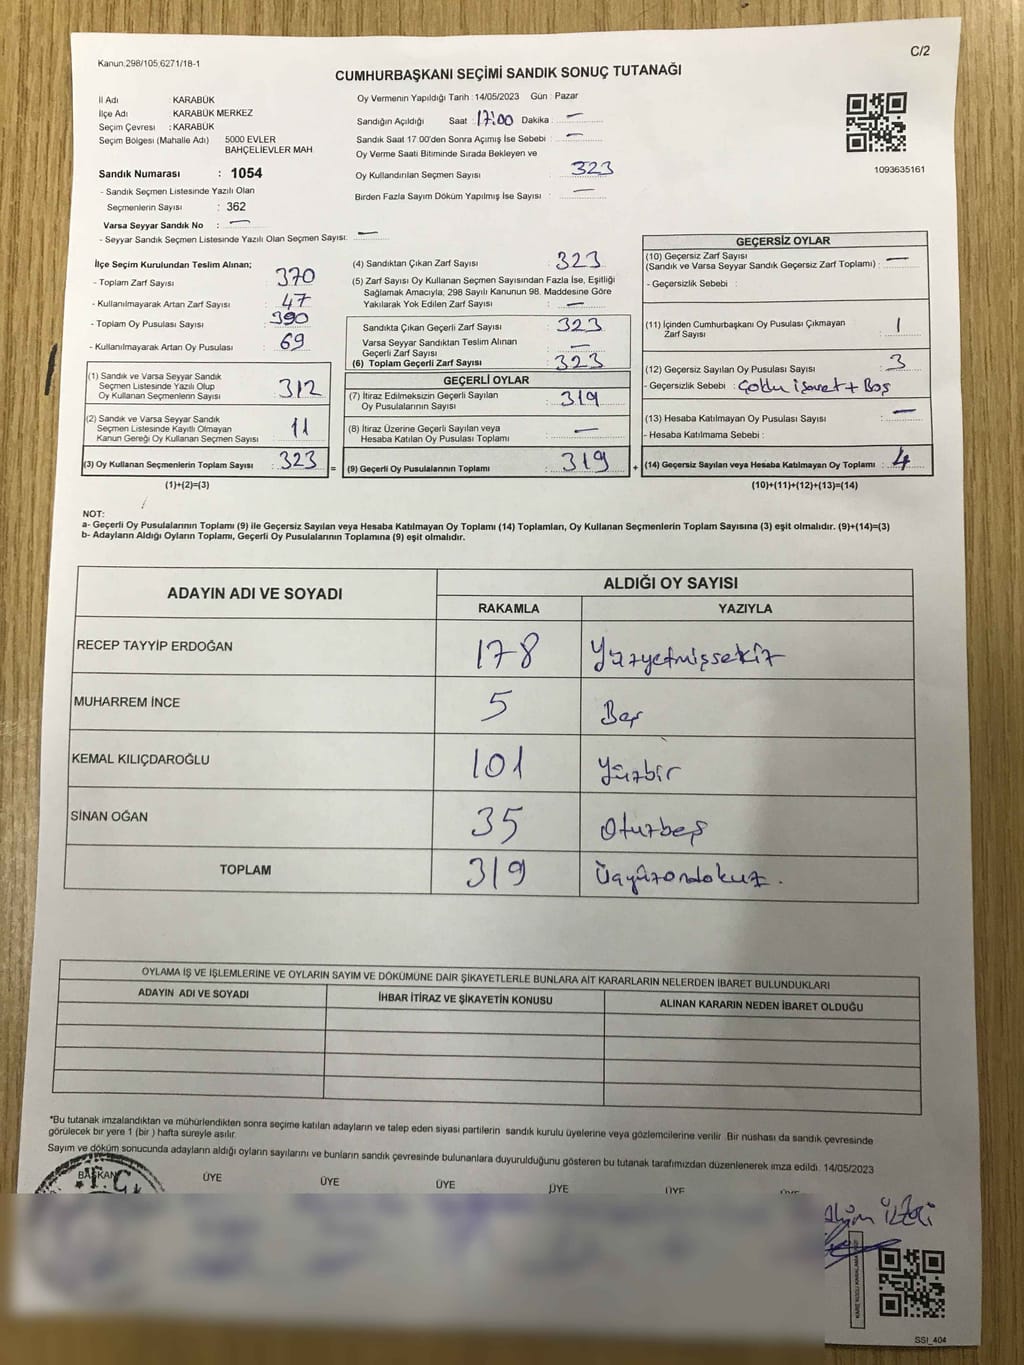 Kanun.298/105,6271/18-1
C/2
CUMHURBAŞKANI SEÇİMİ SANDIK SONUÇ TUTANAĞI
İl Adı : KARABÜK
İlçe Adı : KARABÜK MERKEZ
Seçim Çevresi : KARABÜK
Seçim Bölgesi (Mahalle Adı) 5000 EVLER
BAHÇELİEVLER MAH.
Sandık Numarası : 1054
- Sandık Seçmen Listesinde Yazılı Olan
Seçmenlerin Sayısı : 362
Varsa Seyyar Sandık No : —
- Seyyar Sandık Seçmen Listesinde Yazılı Olan Seçmen Sayısı: —
Oy Vermenin Yapıldığı Tarih : 14/05/2023 Gün : Pazar
Sandığın Açıldığı Saat : 17:00 Dakika : —
Sandık Saat 17.00'den Sonra Açımış İse Sebebi : —
Oy Verme Saati Bitiminde Sırada Bekleyen ve
Oy Kullandırılan Seçmen Sayısı : 323
Birden Fazla Sayım Döküm Yapılmış İse Sayısı : —
1093635161
İlçe Seçim Kurulundan Teslim Alınan;
- Toplam Zarf Sayısı : 370
- Kullanılmayarak Artan Zarf Sayısı : 47
- Toplam Oy Pusulası Sayısı : 390
- Kullanılmayarak Artan Oy Pusulası : 69
(1) Sandık ve Varsa Seyyar Sandık
Seçmen Listesinde Yazılı Olup
Oy Kullanan Seçmenlerin Sayısı : 312
(2) Sandık ve Varsa Seyyar Sandık
Seçmen Listesinde Kayıtlı Olmayan
Kanun Gereği Oy Kullanan Seçmen Sayısı : 11
(3) Oy Kullanan Seçmenlerin Toplam Sayısı : 323 =
(1)+(2)=(3)
(4) Sandıktan Çıkan Zarf Sayısı : 323
(5) Zarf Sayısı Oy Kullanan Seçmen Sayısından Fazla İse, Eşitliği
Sağlamak Amacıyla; 298 Sayılı Kanunun 98. Maddesine Göre
Yakılarak Yok Edilen Zarf Sayısı : —
Sandıkta Çıkan Geçerli Zarf Sayısı : 323
Varsa Seyyar Sandıktan Teslim Alınan
Geçerli Zarf Sayısı : —
(6) Toplam Geçerli Zarf Sayısı : 323
GEÇERLİ OYLAR
(7) İtiraz Edilmeksizin Geçerli Sayılan
Oy Pusulalarının Sayısı : 319
(8) İtiraz Üzerine Geçerli Sayılan veya
Hesaba Katılan Oy Pusulası Toplamı : —
(9) Geçerli Oy Pusulalarının Toplamı : 319 +
GEÇERSİZ OYLAR
(10) Geçersiz Zarf Sayısı
(Sandık ve Varsa Seyyar Sandık Geçersiz Zarf Toplamı) : —
- Geçersizlik Sebebi :
(11) İçinden Cumhurbaşkanı Oy Pusulası Çıkmayan
Zarf Sayısı : 1
(12) Geçersiz Sayılan Oy Pusulası Sayısı : 3
- Geçersizlik Sebebi : Çoklu işaret + Boş
(13) Hesaba Katılmayan Oy Pusulası Sayısı : —
- Hesaba Katılmama Sebebi :
(14) Geçersiz Sayılan veya Hesaba Katılmayan Oy Toplamı : 4
(10)+(11)+(12)+(13)=(14)
NOT:
a- Geçerli Oy Pusulalarının Toplamı (9) ile Geçersiz Sayılan veya Hesaba Katılmayan Oy Toplamı (14) Toplamları, Oy Kullanan Seçmenlerin Toplam Sayısına (3) eşit olmalıdır. (9)+(14)=(3)
b- Adayların Aldığı Oyların Toplamı, Geçerli Oy Pusulalarının Toplamına (9) eşit olmalıdır.
ADAYIN ADI VE SOYADI ALDIĞI OY SAYISI
RAKAMLA YAZIYLA
RECEP TAYYİP ERDOĞAN 178 Yüzyetmişsekiz
MUHARREM İNCE 5 Beş
KEMAL KILIÇDAROĞLU 101 Yüzbir
SİNAN OĞAN 35 Otuzbeş
TOPLAM 319 Üçyüzondokuz.
OYLAMA İŞ VE İŞLEMLERİNE VE OYLARIN SAYIM VE DÖKÜMÜNE DAİR ŞİKAYETLERLE BUNLARA AİT KARARLARIN NELERDEN İBARET BULUNDUKLARI
ADAYIN ADI VE SOYADI İHBAR İTİRAZ VE ŞİKAYETİN KONUSU ALINAN KARARIN NEDEN İBARET OLDUĞU
*Bu tutanak imzalandıktan ve mühürlendikten sonra seçime katılan adayların ve talep eden siyasi partilerin sandık kurulu üyelerine veya gözlemcilerine verilir. Bir nüshası da sandık çevresinde
görülecek bir yere 1 (bir ) hafta süreyle asılır.
Sayım ve döküm sonucunda adayların aldığı oyların sayılarını ve bunların sandık çevresinde bulunanlara duyurulduğunu gösteren bu tutanak tarafımızdan düzenlenerek imza edildi. 14/05/2023
BAŞKAN ÜYE ÜYE ÜYE ÜYE ÜYE
T.C.
SSI_404